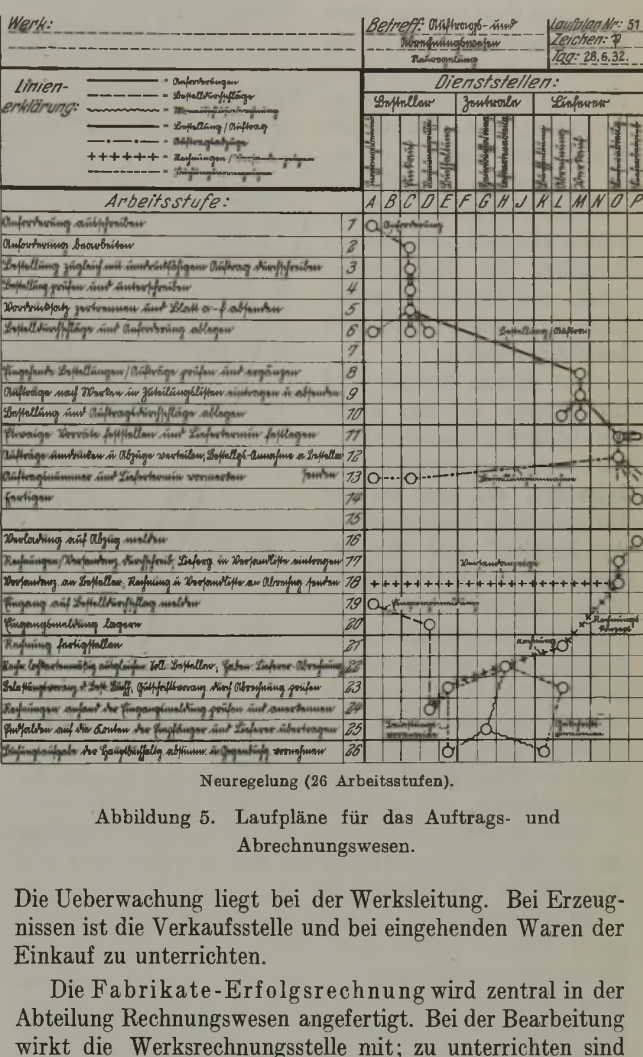 Werk:
Betreff: Auftrags- und
Abrechnungswesen
Neuregelung
Laufplan Nr: 51
Zeichen: P
Tag: 28.6.32.
Linien-
erklärung:
= Anforderungen
= Bestelldurchschläge
= Bestellung / Auftrag
= Auftragsabzüge
= Rechnungen /
Dienststellen:
Besteller Zentrale Lieferer
Einkauf
Abrechnung
Verkauf
Arbeitsstufe:
A B C D E F G H J K L M N O P
Anforderung ausschreiben 1 Anforderung
Anforderung bearbeiten 2
Bestellung zugleich mit umdruckfähigem Auftrag durchschreiben 3
Bestellung prüfen und unterschreiben 4
Vordrucksatz zertrennen und Blatt a-f absenden 5
Bestelldurchschläge und Anforderung ablegen 6 Bestellung/Auftrag
7
Eingehende Bestellungen/Aufträge prüfen und ergänzen 8
Aufträge nach Werken in Zuteilungslisten eintragen u absenden 9
Bestellung und Auftragsdurchschläge ablegen 10
Etwaige Vorräte feststellen und Liefertermin festlegen 11
Aufträge umdrucken u Abzüge verteilen, Bestellgs-Annahme a. Besteller 12
Auftragsnummer und Liefertermin vormerken senden 13 Bestellungsannahme
Fertigen 14
15
Verladung auf Abzug melden 16
Rechnungen/Versandanz. durchschreib., Lieferg in Versandliste eintragen 17 Versandanzeige
Versandanz. an Besteller, Rechnung u Versandliste an Abrechng senden 18
Eingang auf Bestelldurchschlag melden 19 Eingangsmeldung
Eingangsmeldung lagern 20
Rechnung fertigstellen 21 Rechnung
22
23
Rechnungen anhand der Eingangsmeldung prüfen und anerkennen 24
Endsalden auf die Konten der Empfänger und Lieferer übertragen 25
26
Neuregelung (26 Arbeitsstufen).
Abbildung 5. Laufpläne für das Auftrags- und
Abrechnungswesen.
Die Ueberwachung liegt bei der Werksleitung. Bei Erzeug-
nissen ist die Verkaufsstelle und bei eingehenden Waren der
Einkauf zu unterrichten.
Die Fabrikate-Erfolgsrechnung wird zentral in der
Abteilung Rechnungswesen angefertigt. Bei der Bearbeitung
wirkt die Werksrechnungsstelle mit; zu unterrichten sind